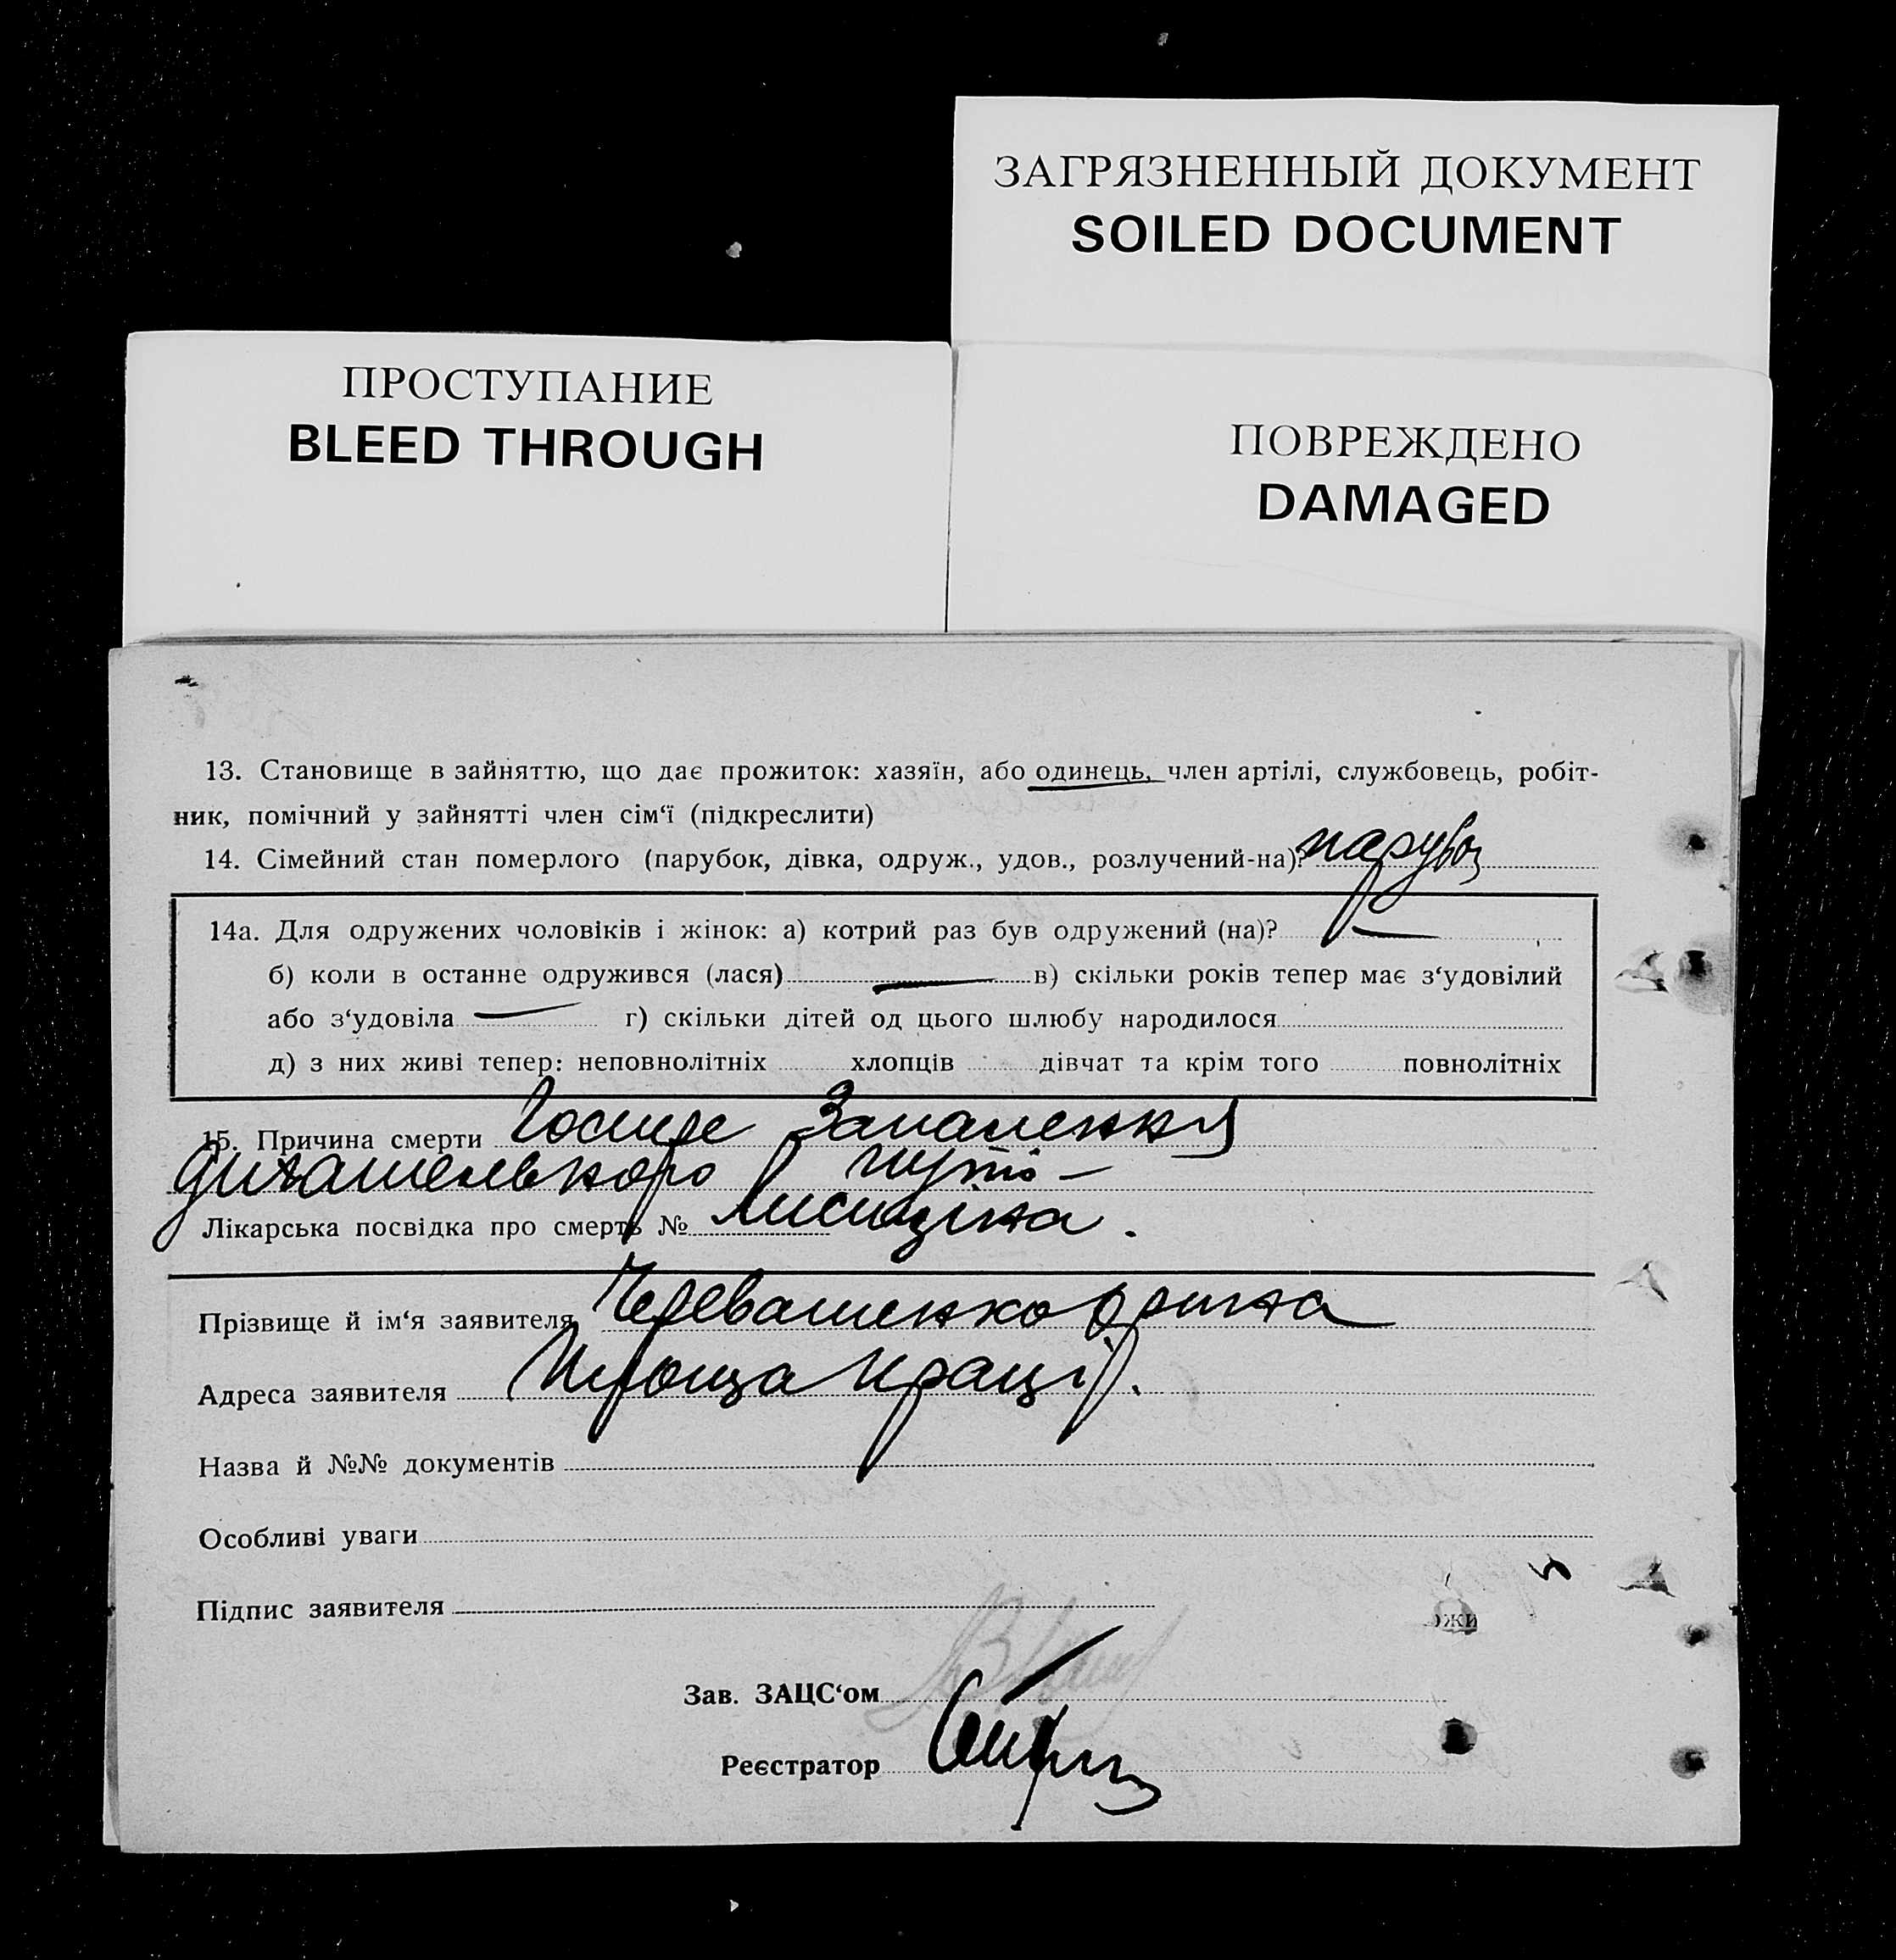 ЗАГРЯЗНЕННЫЙ ДОКУМЕНТ
SOILED DOCUMENT
ПРОСТУПАНИЕ
BLEED THROUGH
ПОВРЕЖДЕНО
DAMAGED
13. Становище в зайняттю, що дає прожиток: хазяїн, або одинець, член артілі, службовець, робіт-
ник, помічний у зайнятті член сім‘ї (підкреслити)
14. Сімейний стан померлого (парубок, дівка, одруж., удов., розлучений-на)? парубок
14а. Для одружених чоловіків і жінок: а) котрий раз був одружений (на)? —
б) коли в останнє одружився (лася) — в) скільки років тепер має з‘удовілий
або з‘удовіла — г) скільки дітей од цього шлюбу народилося
д) з них живі тепер: неповнолітніх хлопців дівчат та крім того повнолітніх
15. Причина смерти Гостре Запалення
дихательного путі —
Лікарська посвідка про смерть № Лисицина.
Прізвище й ім‘я заявителя Черевашенко Орина
Адреса заявителя Площа Праці.
Назва й №№ документів
Особливі уваги
Підпис заявителя
ожи
Зав. ЗАЦС‘ом
Реєстратор